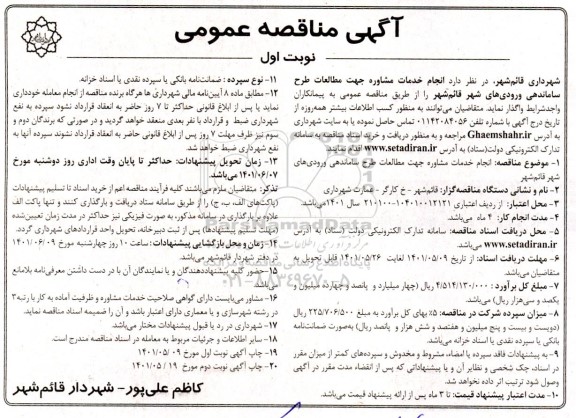 آگهی مناقصه عمومی
نوبت اول
شهرداری قائم‌شهر، در نظر دارد انجام خدمات مشاوره جهت مطالعات طرح
ساماندهی ورودی‌های شهر قائم‌شهر را از طریق مناقصه عمومی به پیمانکاران
واجدشرایط واگذار نماید. متقاضیان می‌توانند به منظور کسب اطلاعات بیشتر همه‌روزه از
تاریخ درج آگهی با شماره تلفن ۰۱۱۴۲۰۸۴۰۵۶ تماس حاصل نموده یا به سایت شهرداری
به آدرس Ghaemshahr.ir مراجعه و به منظور دریافت و خرید اسناد مناقصه به سامانه
تدارک الکترونیکی دولت(ستاد) به آدرس www.setadiran.ir اقدام نمایند.
۱- موضوع مناقصه: انجام خدمات مشاوره جهت مطالعات طرح ساماندهی ورودی‌های
شهر قائم‌شهر
۲- نام و نشانی دستگاه مناقصه‌گزار: قائم‌شهر - خ کارگر - عمارت شهرداری
۳- محل اعتبار: از ردیف اعتباری ۱۰۴۰۱۰۰۱۲۱۲۱-۲۱۰۱۰۰ سال ۱۴۰۱می‌باشد.
۴- مدت انجام کار: ۴ ماه می‌باشد.
۵- محل دریافت اسناد مناقصه: سامانه تدارک الکترونیکی دولت (ستاد) به آدرس
www.setadiran.ir می‌باشد.
۶- مهلت دریافت اسناد: از تاریخ ۱۴۰۱/۰۵/۰۹ لغایت ۱۴۰۱/۰۵/۲۶ قابل تحویل به
متقاضیان می‌باشد.
۷- مبلغ کل برآورد : ۴/۵۱۴/۱۳۰/۰۰۰ ریال (چهار میلیارد و پانصد و چهارده میلیون و
یکصد و سی‌هزار ریال) می‌باشد.
۸- میزان سپرده شرکت در مناقصه: ۵٪ بهای کل برآورد به مبلغ ۲۲۵/۷۰۶/۵۰۰ ریال
(دویست و بیست و پنج میلیون و هفتصد و شش هزار و پانصد ریال) به‌صورت ضمانت‌نامه
بانکی یا سپرده نقدی یا اسناد خزانه می‌باشد.
۹- به پیشنهادات فاقد سپرده یا امضاء، مشروط و مخدوش و سپرده‌های کمتر از میزان مقرر
در اسناد، چک شخصی و نظایر آن و یا پیشنهاداتی که پس از انقضاء مدت مقرر در آگهی
وصول شود ترتیب اثر داده نخواهد شد.
۱۰- مدت اعتبار پیشنهاد قیمت: تا ۳ ماه پس از ارائه پیشنهاد قیمت می‌باشد.
۱۱- نوع سپرده : ضمانت‌نامه بانکی یا سپرده نقدی یا اسناد خزانه.
۱۲- مطابق ماده ۸ آیین‌نامه مالی شهرداری ها هرگاه برنده مناقصه از انجام معامله خودداری
نماید یا پس از ابلاغ قانونی حداکثر تا ۷ روز حاضر به انعقاد قرارداد نشود سپرده به نفع
شهرداری ضبط و قرارداد با نفر بعدی منعقد خواهد گردید و در صورتی که برندگان دوم و
سوم نیز ظرف مهلت ۷ روز پس از ابلاغ قانونی حاضر به انعقاد قرارداد نشوند سپرده آنها به
نفع شهرداری ضبط خواهد شد.
۱۳- زمان تحویل پیشنهادات: حداکثر تا پایان وقت اداری روز دوشنبه مورخ
۱۴۰۱/۰۶/۰۷ می‌باشد.
تذکر: متقاضیان ملزم می‌باشند کلیه فرآیند مناقصه اعم از خرید اسناد تا تسلیم پیشنهادات
(پاکت‌های الف، ب، ج) را از طریق سامانه ستاد دریافت و بارگذاری کنند و تنها پاکت الف
علاوه بر بارگذاری در سامانه مذکور، به صورت فیزیکی نیز حداکثر در مدت زمان تعیین‌شده
(مهلت تسلیم پیشنهادها) پس از ثبت دبیرخانه، تحویل واحد قراردادهای شهرداری گردد.
۱۴- زمان و محل بازگشایی پیشنهادات: ساعت ۱۰ روز چهارشنبه مورخ ۱۴۰۱/۰۶/۰۹
در دفتر شهردار قائم‌شهر می‌باشد.
۱۵- حضور کلیه پیشنهاددهندگان و یا نمایندگان آن با در دست داشتن معرفی‌نامه بلامانع
می‌باشد.
۱۶- مشاور می‌بایست دارای گواهی صلاحیت خدمات مشاوره و ظرفیت آماده به کار با رتبه۳
در رشته شهرسازی و یا معماری دارای اعتبار باشد و آن را ضمیمه اسناد مناقصه نماید.
۱۷- شهرداری در رد یا قبول پیشنهادات مختار می‌باشد.
۱۸- سایر اطلاعات و جزئیات مربوط به معامله در اسناد مناقصه مندرج است.
۱۹- چاپ آگهی نوبت اول مورخ ۱۴۰۱/۰۵/۰۹
۲۰- چاپ آگهی نوبت دوم مورخ ۱۴۰۱/۰۵/۱۹
کاظم علی‌پور- شهردار قائم‌شهر